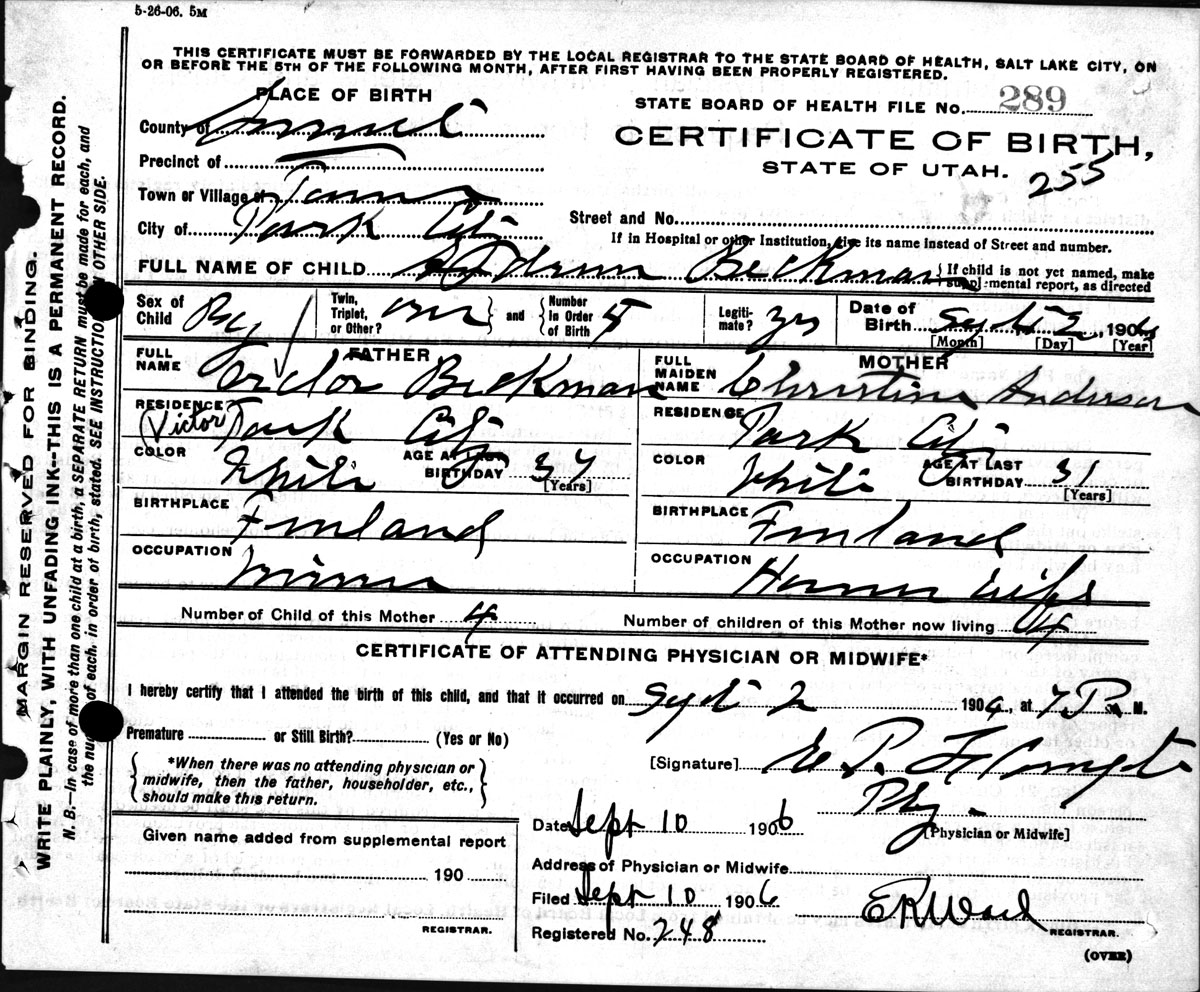 5-26-06. 5M
THIS CERTIFICATE MUST BE FORWARDED BY THE LOCAL REGISTRAR TO THE STATE BOARD OF HEALTH, SALT LAKE CITY, ON
OR BEFORE THE 5TH OF THE FOLLOWING MONTH, AFTER FIRST HAVING BEEN PROPERLY REGISTERED.
MARGIN RESERVED FOR BINDING.
WRITE PLAINLY, WITH UNFADING INK--THIS IS A PERMANENT RECORD.
N. B.—In case of more than one child at a birth, a SEPARATE RETURN must be made for each, and
the number of each, in order of birth, stated. SEE INSTRUCTIONS ON OTHER SIDE.
PLACE OF BIRTH
County of Summit
Precinct of
Town or Village of
City of Park City
STATE BOARD OF HEALTH FILE No. 289
CERTIFICATE OF BIRTH,
STATE OF UTAH.
255
Street and No.
If in Hospital or other Institution, give its name instead of Street and number.
FULL NAME OF CHILD Beckman
If child is not yet named, make
supplemental report, as directed
Sex of Child Boy
Twin, Triplet, or Other? one and Number in Order of Birth
Legitimate? yes
Date of Birth Sept 2, 190
[Month] [Day] [Year]
FATHER
FULL NAME Victor Beckman
RESIDENCE Park City
(Victor)
COLOR White AGE AT LAST BIRTHDAY 37 [Years]
BIRTHPLACE Finland
OCCUPATION Miner
MOTHER
FULL MAIDEN NAME Christina Anderson
RESIDENCE Park City
COLOR White AGE AT LAST BIRTHDAY 31 [Years]
BIRTHPLACE Finland
OCCUPATION House wife
Number of Child of this Mother 4 Number of children of this Mother now living 4
CERTIFICATE OF ATTENDING PHYSICIAN OR MIDWIFE*
I hereby certify that I attended the birth of this child, and that it occurred on Sept 2 190, at 7 P. M.
Premature or Still Birth? (Yes or No)
*When there was no attending physician or
midwife, then the father, householder, etc.,
should make this return.
[Signature]
Phy
[Physician or Midwife]
Date Sept 10 1906
Address of Physician or Midwife
Filed Sept 10 1906
Registered No. 248
E R Ward
REGISTRAR.
Given name added from supplemental report
190
REGISTRAR.
(OVER)